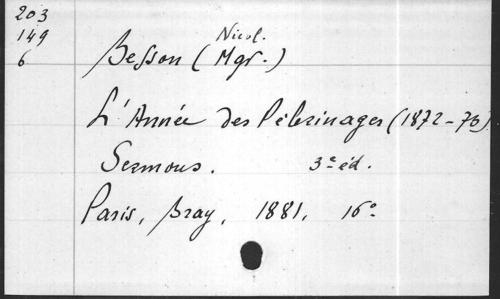 203
149
6
Nicol.
Besson (Mgr.)
L'Année des Pélerinages (1872-73)
Sermons. 3e éd.
Paris, Bray, 1881, 16°